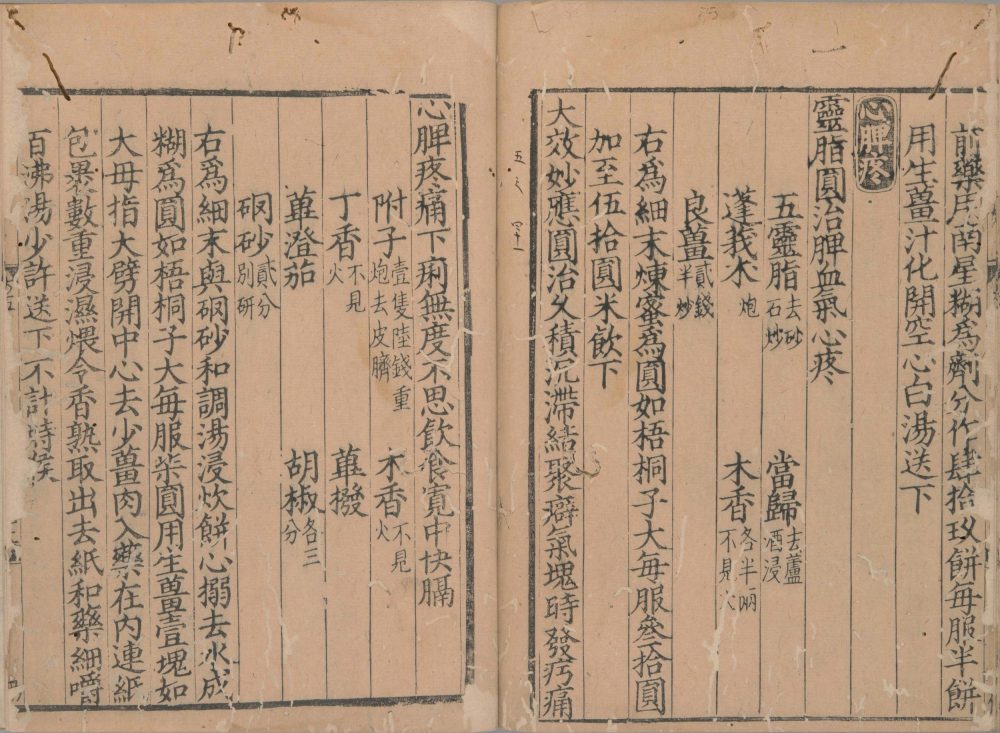 前藥用南星糊為劑分作肆拾玖餅每服半餅
用生薑汁化開空心白湯送下
心脾疼
靈脂圓治脾血氣心疼
五靈脂去砂石炒 當歸去蘆酒浸
蓬莪朮炮 木香各半兩不見火
良薑貳錢半炒
右爲細末煉蜜爲圓如梧桐子大每服叁拾圓
加至伍拾圓米飲下
大效妙應圓治久積沉滯結聚癖氣塊時發疞痛
心脾疼痛下痢無度不思飲食寬中快膈
附子壹隻陸錢重炮去皮臍 木香不見火
丁香不見火 蓽撥
蓽澄茄 胡椒各三分
硇砂貳分別研
右爲細末與硇砂和調湯浸炊餅心搦去水成
糊爲圓如梧桐子大每服柒圓用生薑壹塊如
大母指大劈開中心去少薑肉入藥在內連紙
包褁數重浸濕煨令香熟取出去紙和藥細嚼
百沸湯少許送下不計時候